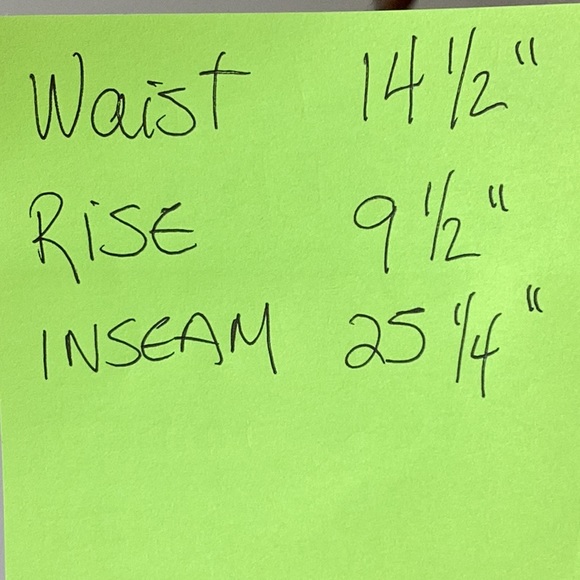 Waist 14 1/2"
RiSE 9 1/2"
INSEAM 25 1/4"